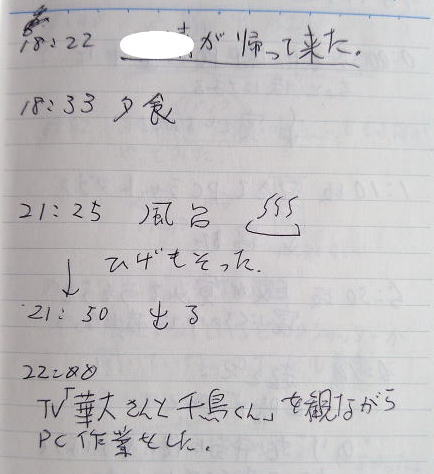 18:22 が帰って来た。
18:33 夕食
21:25 風呂
ひげもそった.
↓
21:50 出る
22:00
TV「華大さんと千鳥くん」を観ながら
PC作業をした.